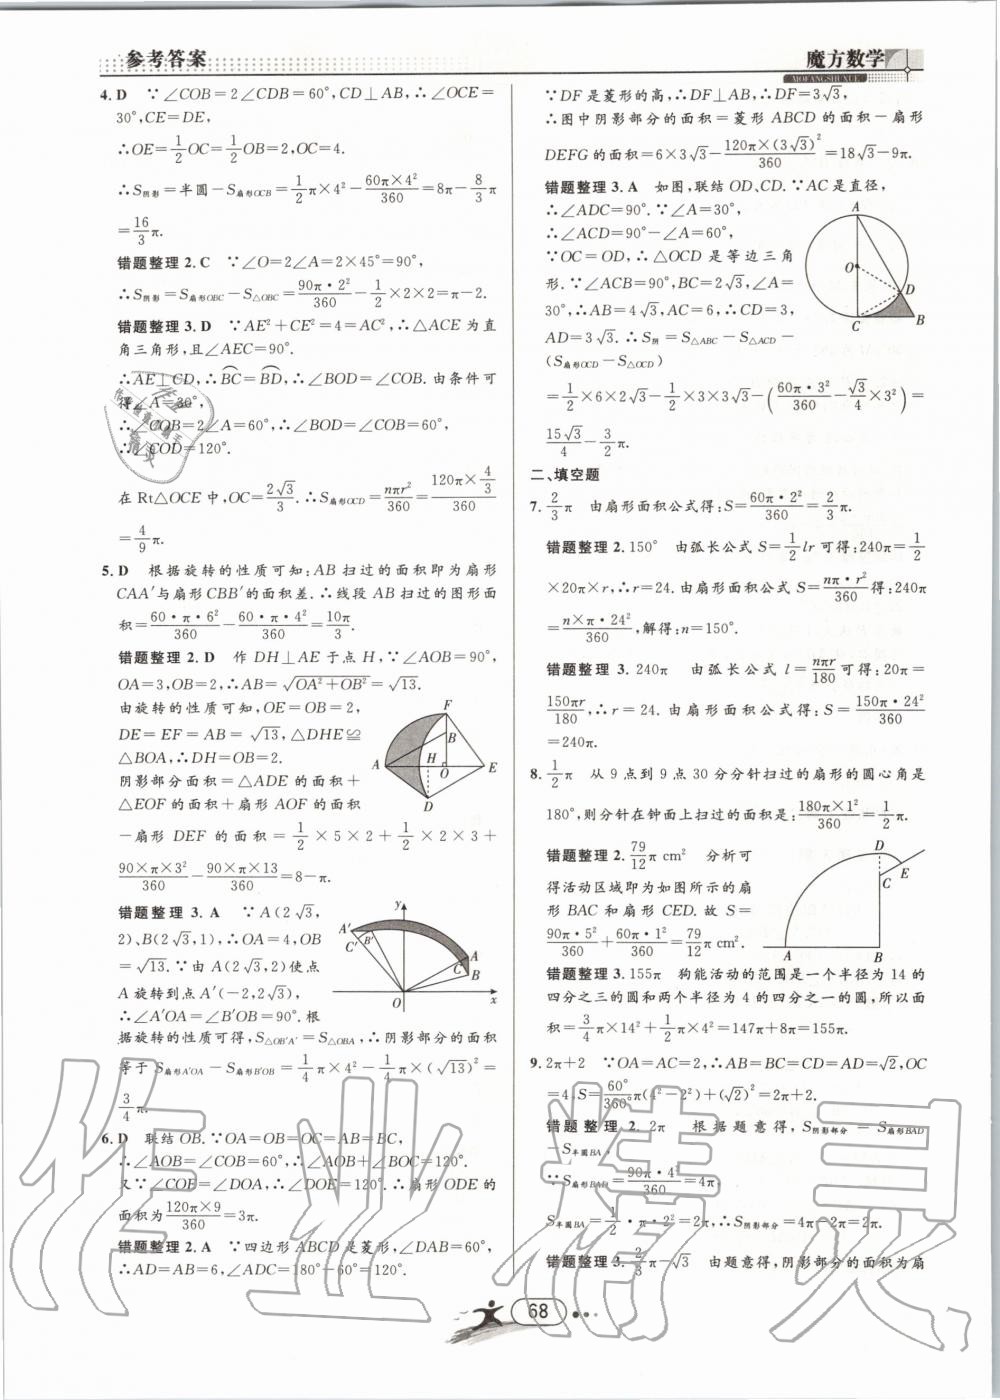 参考答案
魔方数学
MOFANGSHUXUE
4. D ∵∠COB=2∠CDB=60°,CD⊥AB,∴∠OCE=
30°,CE=DE,
∴OE=1/2OC=1/2OB=2,OC=4.
∴S阴影=半圆-S扇形OCB=1/2π×4²-60π×4²/360=8π-8/3π
=16/3π.
错题整理 2. C ∵∠O=2∠A=2×45°=90°,
∴S阴影=S扇形OBC-S△OBC=90π·2²/360-1/2×2×2=π-2.
错题整理 3. D ∵AE²+CE²=4=AC²,∴△ACE为直
角三角形,且∠AEC=90°.
∴AE⊥CD,∴BC=BD,∴∠BOD=∠COB. 由条件可
得∠A=30°,
∴∠COB=2∠A=60°,∴∠BOD=∠COB=60°,
∴∠COD=120°.
在 Rt△OCE 中,OC=2√3/3.∴S扇形OCD=nπr²/360=120π×4/3/360
=4/9π.
5. D 根据旋转的性质可知:AB 扫过的面积即为扇形
CAA′与扇形CBB′的面积差.∴线段 AB 扫过的图形面
积=60·π·6²/360-60·π·4²/360=10π/3.
错题整理 2. D 作 DH⊥AE 于点 H,∵∠AOB=90°,
OA=3,OB=2,∴AB=√OA²+OB²=√13.
由旋转的性质可知,OE=OB=2,
DE=EF=AB=√13,△DHE≌
△BOA,∴DH=OB=2.
阴影部分面积=△ADE 的面积+
△EOF 的面积+扇形 AOF 的面积
-扇形 DEF 的面积=1/2×5×2+1/2×2×3+
90×π×3²/360-90×π×13/360=8-π.
F
B
A
H
O
E
D
错题整理 3. A ∵A(2√3,
2)、B(2√3,1),∴OA=4,OB
=√13.∵由 A(2√3,2)使点
A 旋转到点 A′(-2,2√3),
∴∠A′OA=∠B′OB=90°. 根
据旋转的性质可得,S△OB′A′=S△OBA,∴阴影部分的面积
等于 S扇形A′OA-S扇形B′OB=1/4π×4²-1/4π×(√13)²=
3/4π.
y
A′
C′
B′
A
C
B
O
x
6. D 联结 OB.∵OA=OB=OC=AB=BC,
∴∠AOB=∠COB=60°,∴∠AOB+∠BOC=120°.
又∵∠COE=∠DOA,∴∠DOE=120°.∴扇形 ODE 的
面积为120π×9/360=3π.
错题整理 2. A ∵四边形 ABCD 是菱形,∠DAB=60°,
∴AD=AB=6,∠ADC=180°-60°=120°.
∵DF 是菱形的高,∴DF⊥AB,∴DF=3√3,
∴图中阴影部分的面积=菱形 ABCD 的面积-扇形
DEFG 的面积=6×3√3-120π×(3√3)²/360=18√3-9π.
错题整理 3. A 如图,联结 OD、CD.∵AC 是直径,
∴∠ADC=90°.∵∠A=30°,
∴∠ACD=90°-∠A=60°,
∵OC=OD,∴△OCD 是等边三角
形.∵∠ACB=90°,BC=2√3,∠A=
30°,∴AB=4√3,AC=6,∴CD=3,
AD=3√3.∴S阴=S△ABC-S△ACD-
(S扇形OCD-S△OCD)
A
O
D
C
B
=1/2×6×2√3-1/2×3×3√3-(60π·3²/360-√3/4×3²)=
15√3/4-3/2π.
二、填空题
7. 2/3π 由扇形面积公式得:S=60π·2²/360=2/3π.
错题整理 2. 150° 由弧长公式 S=1/2lr 可得:240π=1/2
×20π×r,∴r=24. 由扇形面积公式 S=nπ·r²/360得:240π
=n×π·24²/360,解得:n=150°.
错题整理 3. 240π 由弧长公式 l=nπr/180可得:20π=
150πr/180,∴r=24. 由扇形面积公式得:S=150π·24²/360
=240π.
8. 1/2π 从 9 点到 9 点 30 分分针扫过的扇形的圆心角是
180°,则分针在钟面上扫过的面积是:180π×1²/360=1/2π.
错题整理 2. 79/12π cm² 分析可
得活动区域即为如图所示的扇
形 BAC 和扇形 CED. 故 S=
90π·5²/360+60π·1²/360=79/12π cm².
D
C
E
A
B
错题整理 3. 155π 狗能活动的范围是一个半径为 14 的
四分之三的圆和两个半径为 4 的四分之一的圆,所以面
积=3/4π×14²+1/2π×4²=147π+8π=155π.
9. 2π+2 ∵OA=AC=2,∴AB=BC=CD=AD=√2,OC
=4,S=60°/360°π(4²-2²)+(√2)²=2π+2.
错题整理 2. 2π 根据题意得,S阴影部分=S扇形BAD
-S半圆BA,
∵S扇形BAD=90π·4²/360=4π,
S半圆BA=1/2·π·2²=2π,∴S阴影部分=4π-2π=2π.
错题整理 3. 2/3π-√3 由题意得,阴影部分的面积为扇
68
作业精灵